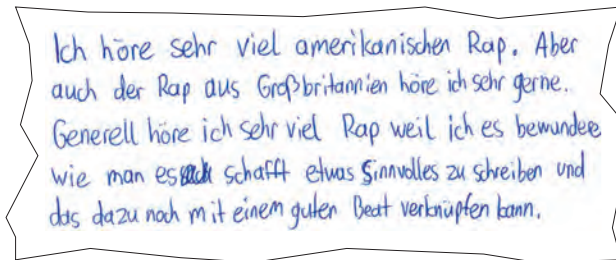 Ich höre sehr viel amerikanischen Rap. Aber
auch der Rap aus Großbritannien höre ich sehr gerne.
Generell höre ich sehr viel Rap weil ich es bewundere
wie man es schafft etwas Sinnvolles zu schreiben und
das dazu noch mit einem guten Beat verknüpfen kann.